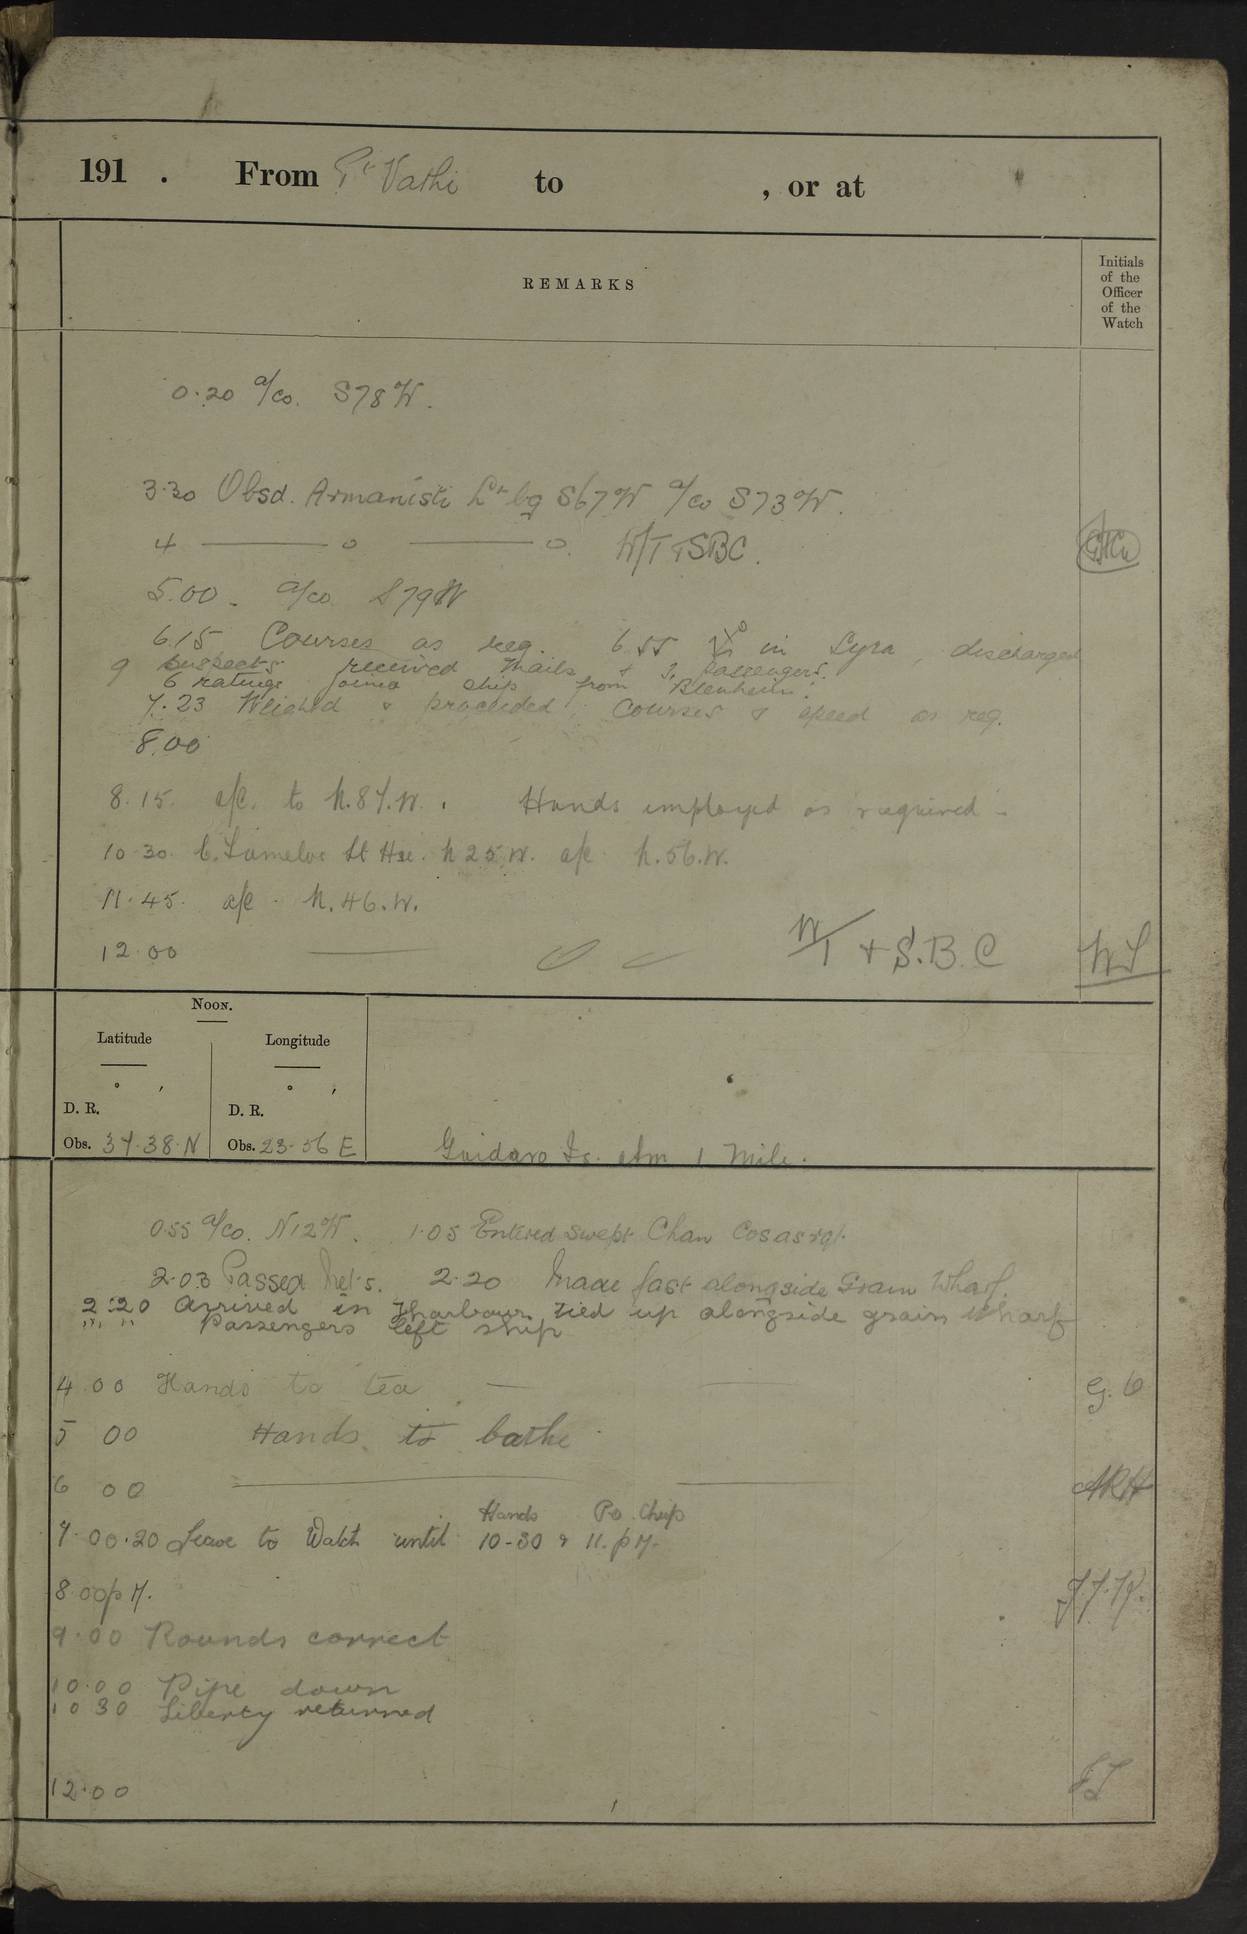 191 . From Pt Vathi to , or at
REMARKS
Initials of the Officer of the Watch
0.20 a/co. S78W.
3.30 Obsd. Armanisti Lt bg S67W a/co S73W.
4 ——— o ——— o. W/T & SBC.
5.00. a/co S79W
6.15 Courses as req. 6.55 in Syra, discharged
9 suspects received mails & 3 passengers.
6 ratings joined ship from Blenheim.
7.23 Weighed & proceeded, Courses & speed as req.
8.00
8.15. a/c. to N.87.W. Hands employed as required -
10.30. Lt Hse. N25.W. a/c N.56.W.
11.45. a/c. N.46.W.
12.00 ——— W/T & S.B.C WS
Noon.
Latitude Longitude
° , ° ,
D. R. D. R.
Obs. 37.38.N Obs. 23.56 E Gaidaro Is. abm 1 Mile.
0.55 a/co. N12W. 1.05 Entered Swept Chan Cosasrqt.
2.03 Passed Nets. 2.20 Made fast alongside Grain Wharf.
2.20 Arrived in Harbour tied up alongside grain wharf
" " " Passengers left ship
4 00 Hands to tea — ——— G.C
5 00 Hands to bathe
6 00 ——— ARH
Hands Po. Chip
7.00.20 Leave to Watch until 10-30 & 11.pM.
8.00pM. J.J.P.
9.00 Rounds correct
10.00 Pipe down
10 30 Liberty returned
12.00